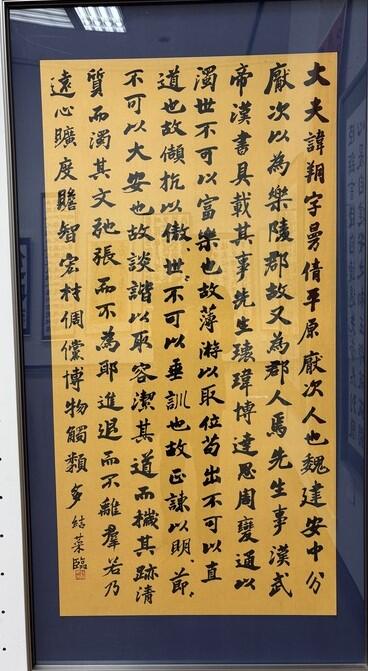 大夫諱朔字曼倩平原厭次人也魏建安中分
厭次以為樂陵郡故又為郡人焉先生事漢武
帝漢書具載其事先生瓌瑋博達思周變通以
濁世不可以富樂也故薄游以取位苟出不可以直
道也故傾抗以傲〻世〻不可以垂訓也故正諫以明〻節〻
不可以久安也故談諧以取容潔其道而穢其跡清
質而濁其文弛張而不為邪進退而不離羣若乃
遠心曠度贍智宏材倜儻博物觸類多
臨